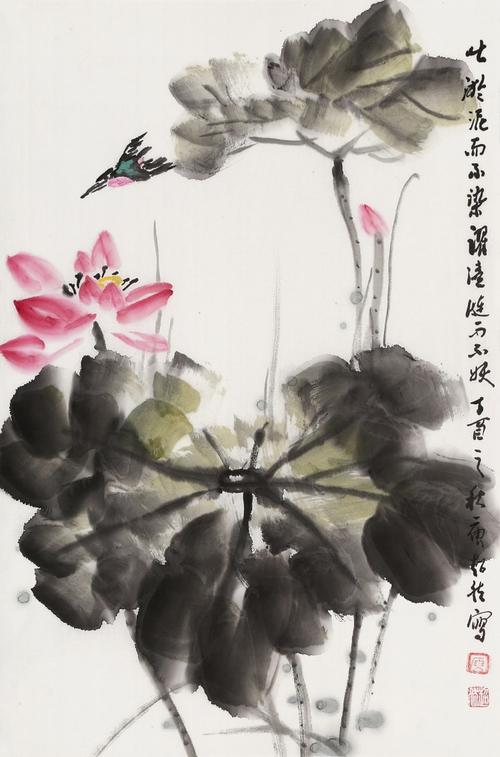 出淤泥而不染濯清涟而不妖丁酉之秋唐写